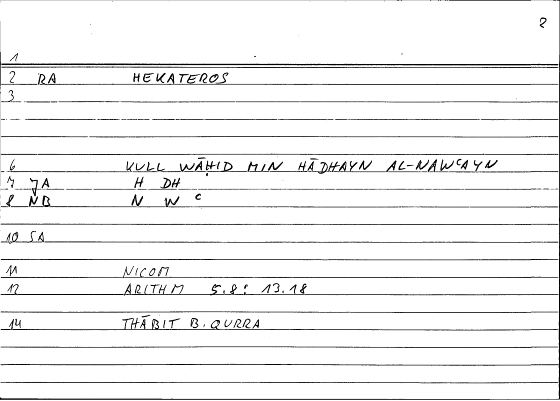 8
1
2 RA HEKATEROS
3
6 KULL WĀḤID MIN HĀDHAYN AL-NAWᶜAYN
7 JA H DH
8 NB N W ᶜ
10 SA
11 NICOM
12 ARITHM 5.8: 13.18
14 THĀBIT B. QURRA